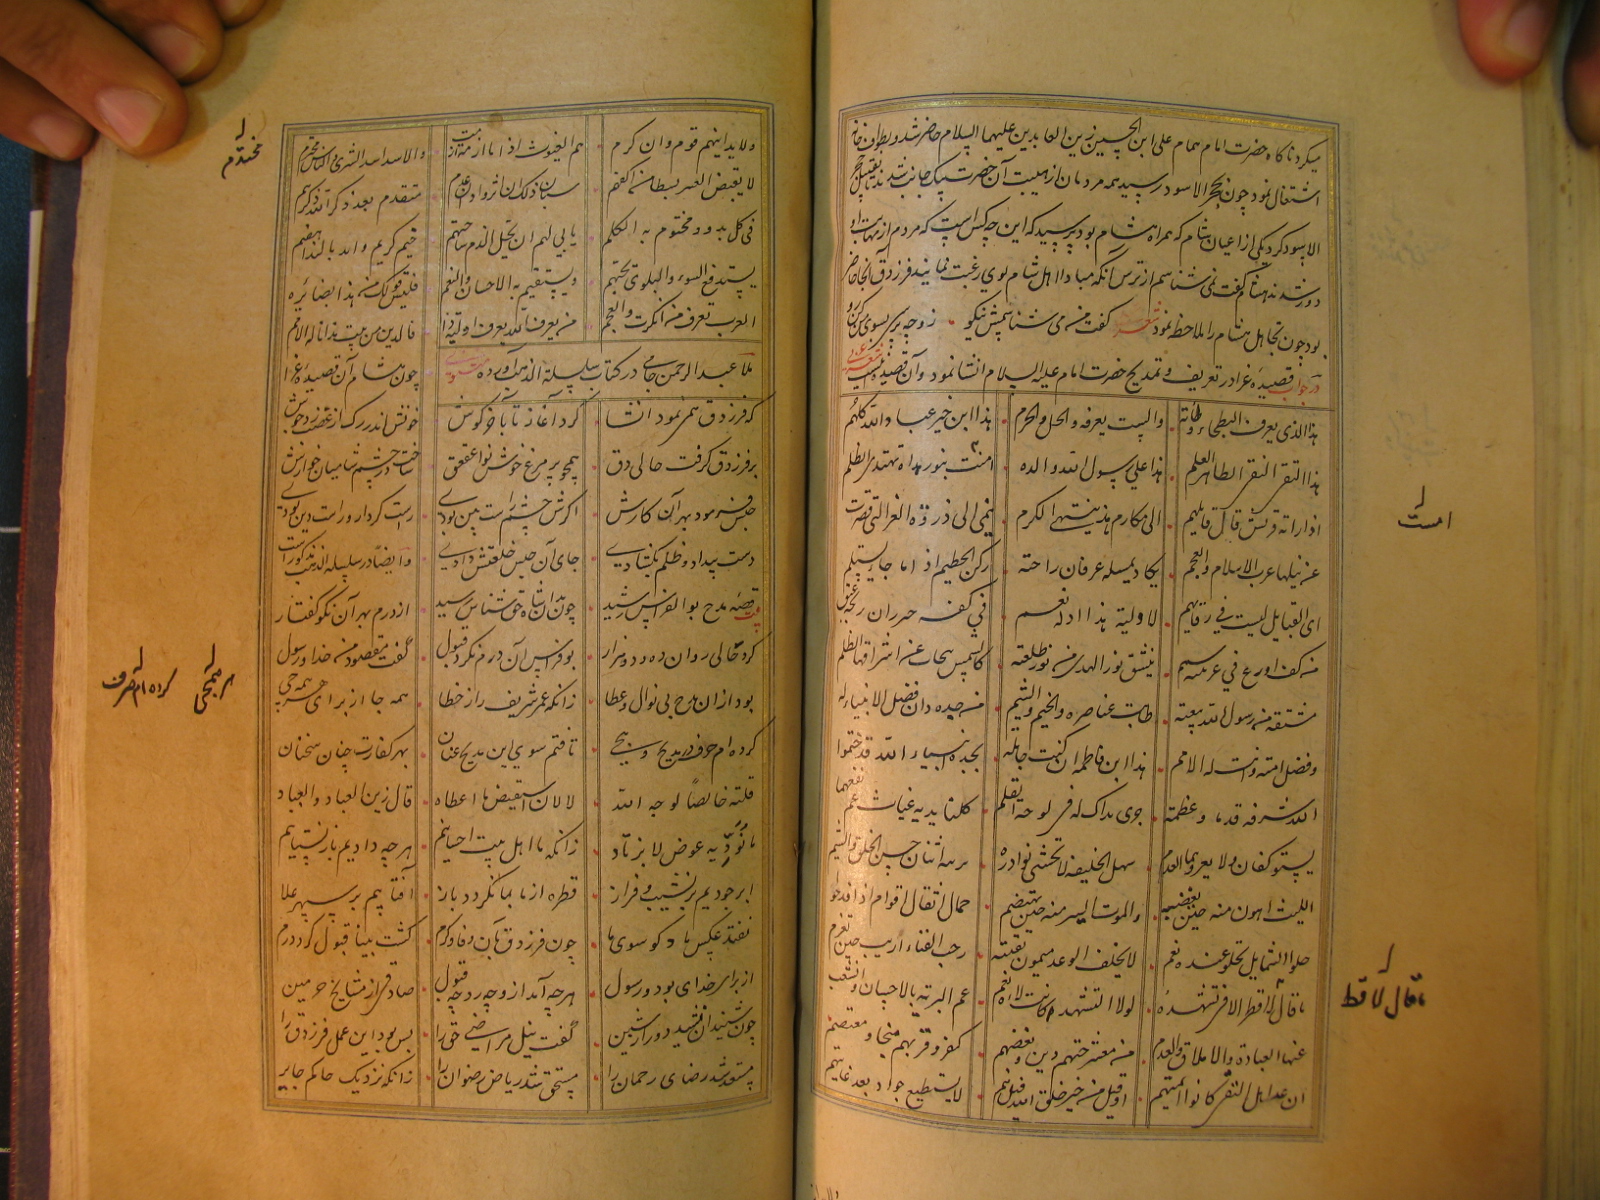 میکرد ناکاه حضرت امام همام علی ابن الحسین زین العابدین علیهما السلام حاضر شد و بطواف خانه
اشتغال نمود چون بحجر الاسود رسید همه مردمان از هیبت آن حضرت بیک جانب شدند تا تقبیل حجر
الاسود کرد یکی از اعیان شام که همراه هشام بود پرسید که این چه کس است که مردم از مهابت او
دور شدند هشام گفت نمی شناسم از ترس آنکه مبادا اهل شام بوی رغبت نمایند فرزدق آنجا حاضر
بود چون تجاهل هشام را ملاحظه نمود شعر گفت من می شناسمش نیکو زو چه پرسی بسوی من کن رو
در جواب قصیده غرا در تعریف و تمدیح حضرت امام علیه السلام انشا نمود و آن قصیده اینست شعر عربی
هذا الذی یعرف البطحاء وطأته والبیت یعرفه والحل والحرم هذا ابن خیر عباد الله کلهم
هذا التقی النقی الطاهر العلم هذا علی رسول الله والده امست بنور هداه تهتدی الظلم
اذا راته قریش قال قایلهم الی مکارم هذا ینتهی الکرم ینمی الی ذروة العز التی قصرت
عن نیلها عرب الاسلام والعجم یکاد یمسکه عرفان راحته رکن الحطیم اذا ما جاء یستلم
ای القبایل لیست فی رقابهم لاولیة هذا اوله نعم فی کفه خیزران ریحه عبق
من کف اروع فی عرنینه شمم ینشق نور الهدی من نور طلعته کالشمس ینجاب عن اشراقها الظلم
مشتقة من رسول الله نبعته طابت عناصره والخیم والشیم من جده دان فضل الانبیاء له
وفضل امته دانت له الامم هذا ابن فاطمة ان کنت جاهله بجده انبیاء الله قد ختموا
الله شرفه قدما وعظمه جری بذاک له فی لوحه القلم کلتا یدیه غیاث عم نفعهما
یستوکفان ولا یعروهما العدم سهل الخلیقة لا تخشی بوادره یزینه اثنان حسن الخلق والشیم
اللیث اهون منه حین تغضبه والموت ایسر منه حین یهتضم حمال اثقال اقوام اذا فدحوا
حلو الشمایل تحلو عنده نعم لا یخلف الوعد میمون نقیبته رحب الفناء اریب حین یعتزم
ما قال لا قط الا فی تشهده لولا التشهد کانت لاءه نعم عم البریة بالاحسان وانقشعت
عنها العبادة والاملاق والعدم من معشر حبهم دین وبغضهم کفر وقربهم منجا ومعتصم
ان عد اهل التقی کانوا ائمتهم او قیل من خیر خلق الله قیل هم لا یستطیع جواد بعد غایتهم
امست
ما قال لا قط
ولا یدانیهم قوم وان کرم هم الغیوث اذا ما ازمة ازمت والاسد اسد الشری والباس محتدم
لا یقبض العسر بسطا من اکفهم سیان ذلک ان اثروا وان عدم متقدم بعد ذکر الله ذکرهم
فی کل بدو ومختوم به الکلم یابی لهم ان یحل الذم ساحتهم خیم کریم واید بالندا هضم
یستدفع السوء والبلوی بحبهم ویستقیم به الاحسان والنعم فلیس قولک من هذا بضائره
العرب تعرف من انکرت والعجم من یعرف الله یعرف اولیة ذا فالدین من بیت هذا ناله الامم
ملا عبد الرحمن جامی در کتاب سلسلة الذهب آورده مثنوی چون هشام آن قصیده غرا
که فرزدق همی نمود انشا کرد آغاز تا بآخر گوش خونش اندر رگ از غضب زد جوش
بر فرزدق گرفت حالی دق همچو بر مرغ خوش نوا عقعق ساخت در چشم شامیان خوارش
حبس فرمود بهر آن کارش اگرش چشم راست بین بودی راست کردار و راست دین بودی
دست بیداد و ظلم نگشادی جای آن حبس خلعتش دادی و ایضا در سلسلة الذهب مذکورست
قصه مدح بوالفراس رشید چون بدان شاه حق شناس رسید از درم بهر آن نکو گفتار
کرد حالی روان ده و دو هزار بوفراس آن درم نکرد قبول گفت مقصود من خدا و رسول
بود از آن مدح نی نوال و عطا زانکه عمر شریف را ز خطا همه جا از برای هر همه جی
کرده ام صرف در مدیح و هجی تافتم سوی این مدیح عنان بهر کفارت چنان سخنان
قلته خالصا لوجه الله لا لان استفیض ما اعطاه قال زین العباد والعباد
ما نودیه عوض لا یزتاد زانکه ما اهل بیت احسانیم هر چه دادیم باز نستانیم
ابر جودیم بر نشیب و فراز قطره از ما بما نگردد باز آفتابیم بر سپهر علا
نفتد عکس ما دکر سوی ما چون فرزدق بآن وفا و کرم گشت بینا قبول کرد درم
از برای خدای بود و رسول هر چه آمد از وجه رد چه قبول صادقی از مشایخ حرمین
چون شنید آن نشید دور از شین گفت نیل مراضی حق را بس بود این عمل فرزدق را
مستعد شد رضای رحمان را مستحق شد ریاض رضوان را زانکه نزدیک حاکم جابر
محتدم
هر همجی
کرده ام صرف